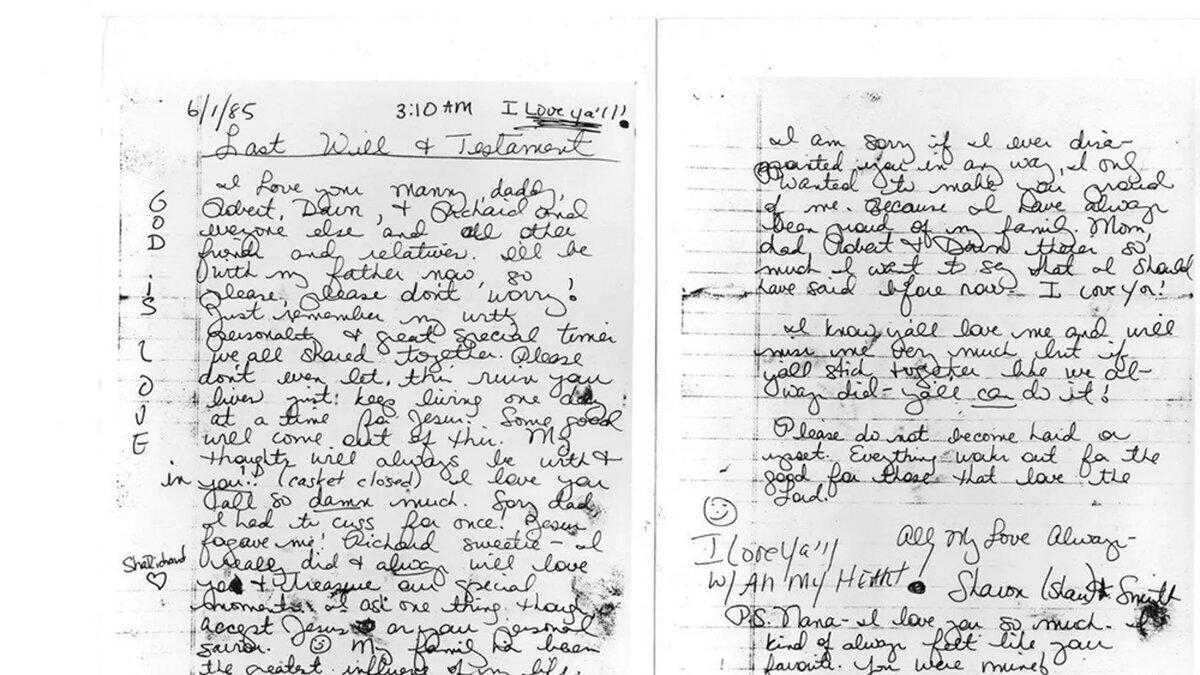 6/1/85 3:10 AM I Love ya'll!
Last Will & Testament
GOD iS LOVE
I Love you mommy, daddy,
Robert, Dawn, & Richard and
everyone else and all other
friends and relatives. I'll be
with my father now, so
please, please don't worry!
Just remember my witty
personality & great special times
we all shared together. Please
don't ever let this ruin your
lives just keep living one day
at a time for Jesus. Some good
will come out of this. My
thoughts will always be with &
in you!! (casket closed) I love you
all so damn much. Sorry dad,
I had to cuss for once! Jesus
forgave me! Richard sweetie - I
really did & always will love
you & treasure our special
moments. I ask one thing though,
accept Jesus as your personal
savior. My family has been
the greatest influence of my life.
I am sorry if I ever disa-
pointed you in any way, I only
wanted to make you proud
of me. Because I have always
been proud of my family. Mom,
dad Robert & Dawn theres so
much I want to say that I should
have said before now - I love ya!
I know y'all love me and will
miss me very much but if
y'all stick together like we al-
ways did - y'all can do it!
Please do not become hard or
upset. Everything works out for the
good for those that love the
Lord.
I Love Ya'll
w/All My Heart!
All My Love Always -
Sharon (Shari) Smith
P.S. Nana - I love you so much. I
kind of always felt like your
favorite. You were mine!